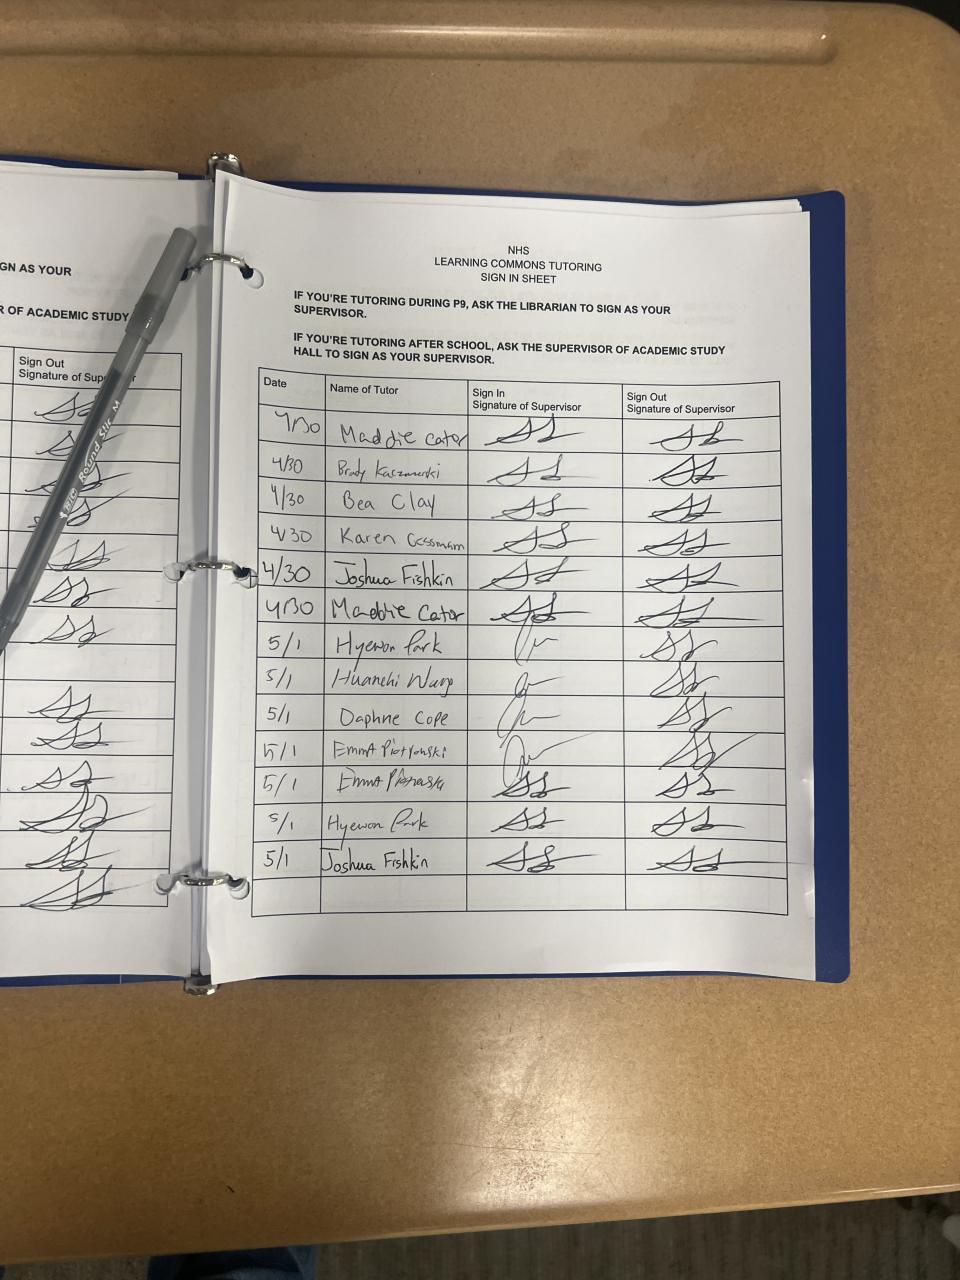 GN AS YOUR
R OF ACADEMIC STUDY
Sign Out
Signature of
BIC Round Stic M
NHS
LEARNING COMMONS TUTORING
SIGN IN SHEET
IF YOU'RE TUTORING DURING P9, ASK THE LIBRARIAN TO SIGN AS YOUR
SUPERVISOR.
IF YOU'RE TUTORING AFTER SCHOOL, ASK THE SUPERVISOR OF ACADEMIC STUDY
HALL TO SIGN AS YOUR SUPERVISOR.
Date Name of Tutor Sign In Sign Out
Signature of Supervisor Signature of Supervisor
4/30 Maddie Cator
4/30 Brady
4/30 Bea Clay
4/30 Karen
4/30 Joshua Fishkin
4/30 Maddie Cator
5/1 Hyewon Park
5/1 Wang
5/1 Daphne Cope
5/1 Emma
5/1 Emma
5/1 Hyewon Park
5/1 Joshua Fishkin